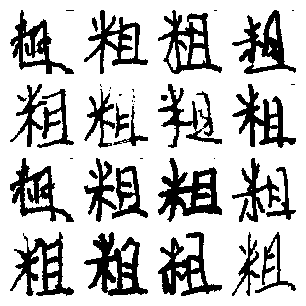 粗粗粗粗
粗粗粗粗
粗粗粗粗
粗粗粗粗